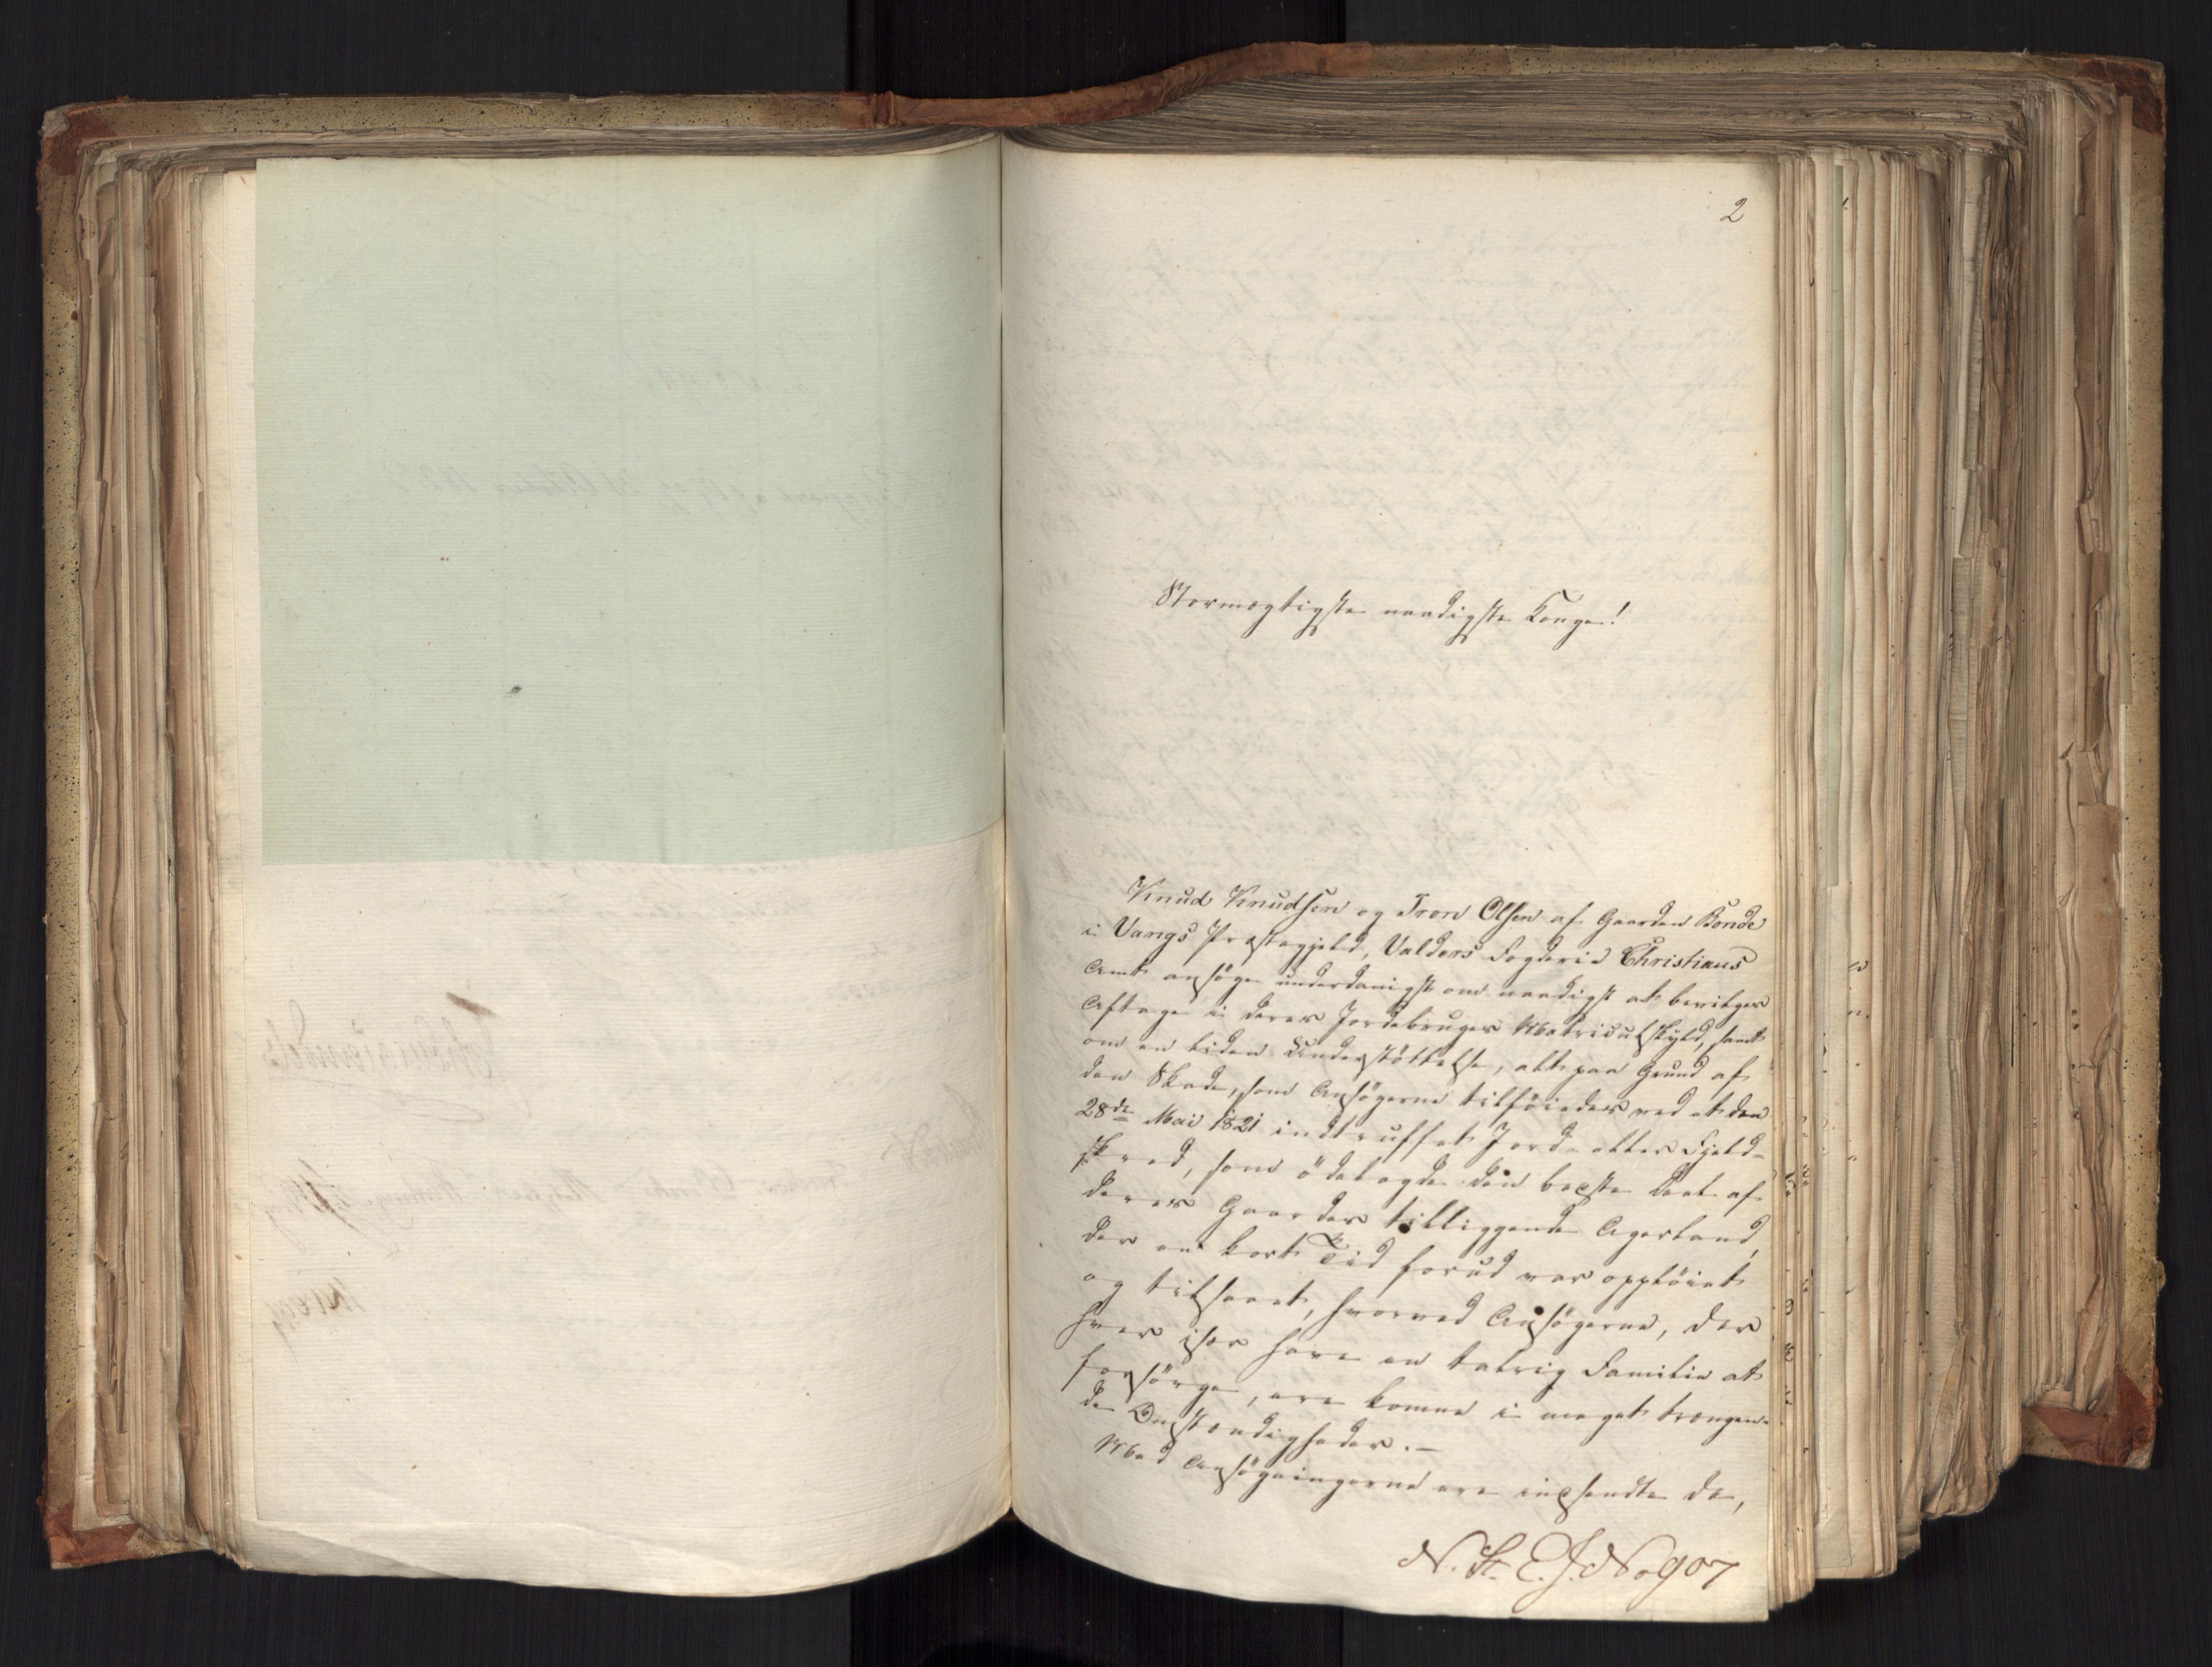 2
Stormægtigste naadigste Konge!
Knud Knudsen og Tron Olsen af Gaarden Bonde
i Vangs Præstegjeld, Valders Fogderie Christians
Amt ansøge underdanigst om naadigst at bevilges
Aftage i deres Jordebruges Matriculskyld, samt
om en liden Understøttelse, alt paa Grund af
den Skade, som Ansøgerne tilføiedes ved et den
28de Mai 1821 indtruffet Jord- eller Fjeld-
skred, som ödelagde den beste Deel af
deres Gaarder tilliggende Agerland,
der en kort Tid forud var opplöiet
og tilsaaet, hvorved Ansøgerne, der
hver især have en talrig Familie at
forsörge, ere komne i meget trængen-
de Omstændigheder. —
Med Ansøgningerne ere indsendte de,
N. St. E. J. No 907